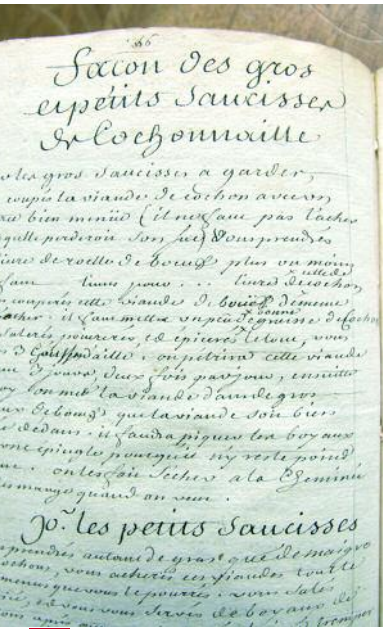 66
facon des gros
et petits Saucisses
de Cochonnaille
les gros Saucisses a garder,
coupés la viande de cochon avec un
bien menüe (il ne faut pas l'acher
perderoit son suc) & vous prendrés
de roëlle de boeuf plus ou moins
livres pour ... livres de cochon
celle de
couperés cette viande de boeuf de meme
acher. il faut mettre un peu de graisse de cochon
bonne
salerés poivrerés, et épicerés le tout, vous
3 Gousses d'aille. on pétrira cette viande
3 jours, deux fois par jour, ensuitte
on met la viande dans de gros
de boeuf que la viande soit bien
dedans. il faudra piquer les boyaux
une epingle pourquoi n'y reste point
on les fait sécher a la Cheminée
mange quand on veut.
Jo. les petits Saucisses
prendrés autant de gras que de maigre
cochon, vous acherés ces viandes tout
menus que vous le pourrés. vous salés
vous servés de boyaux de